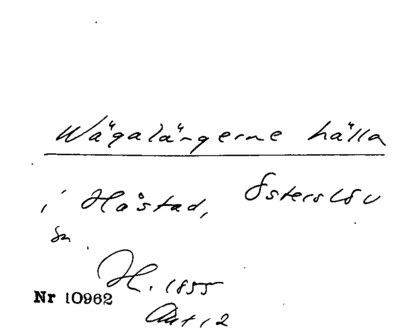 Wägalängerne hälla
i Håstad, Österslöv
sn.
H. 1855
Nr 10962
Akt 12